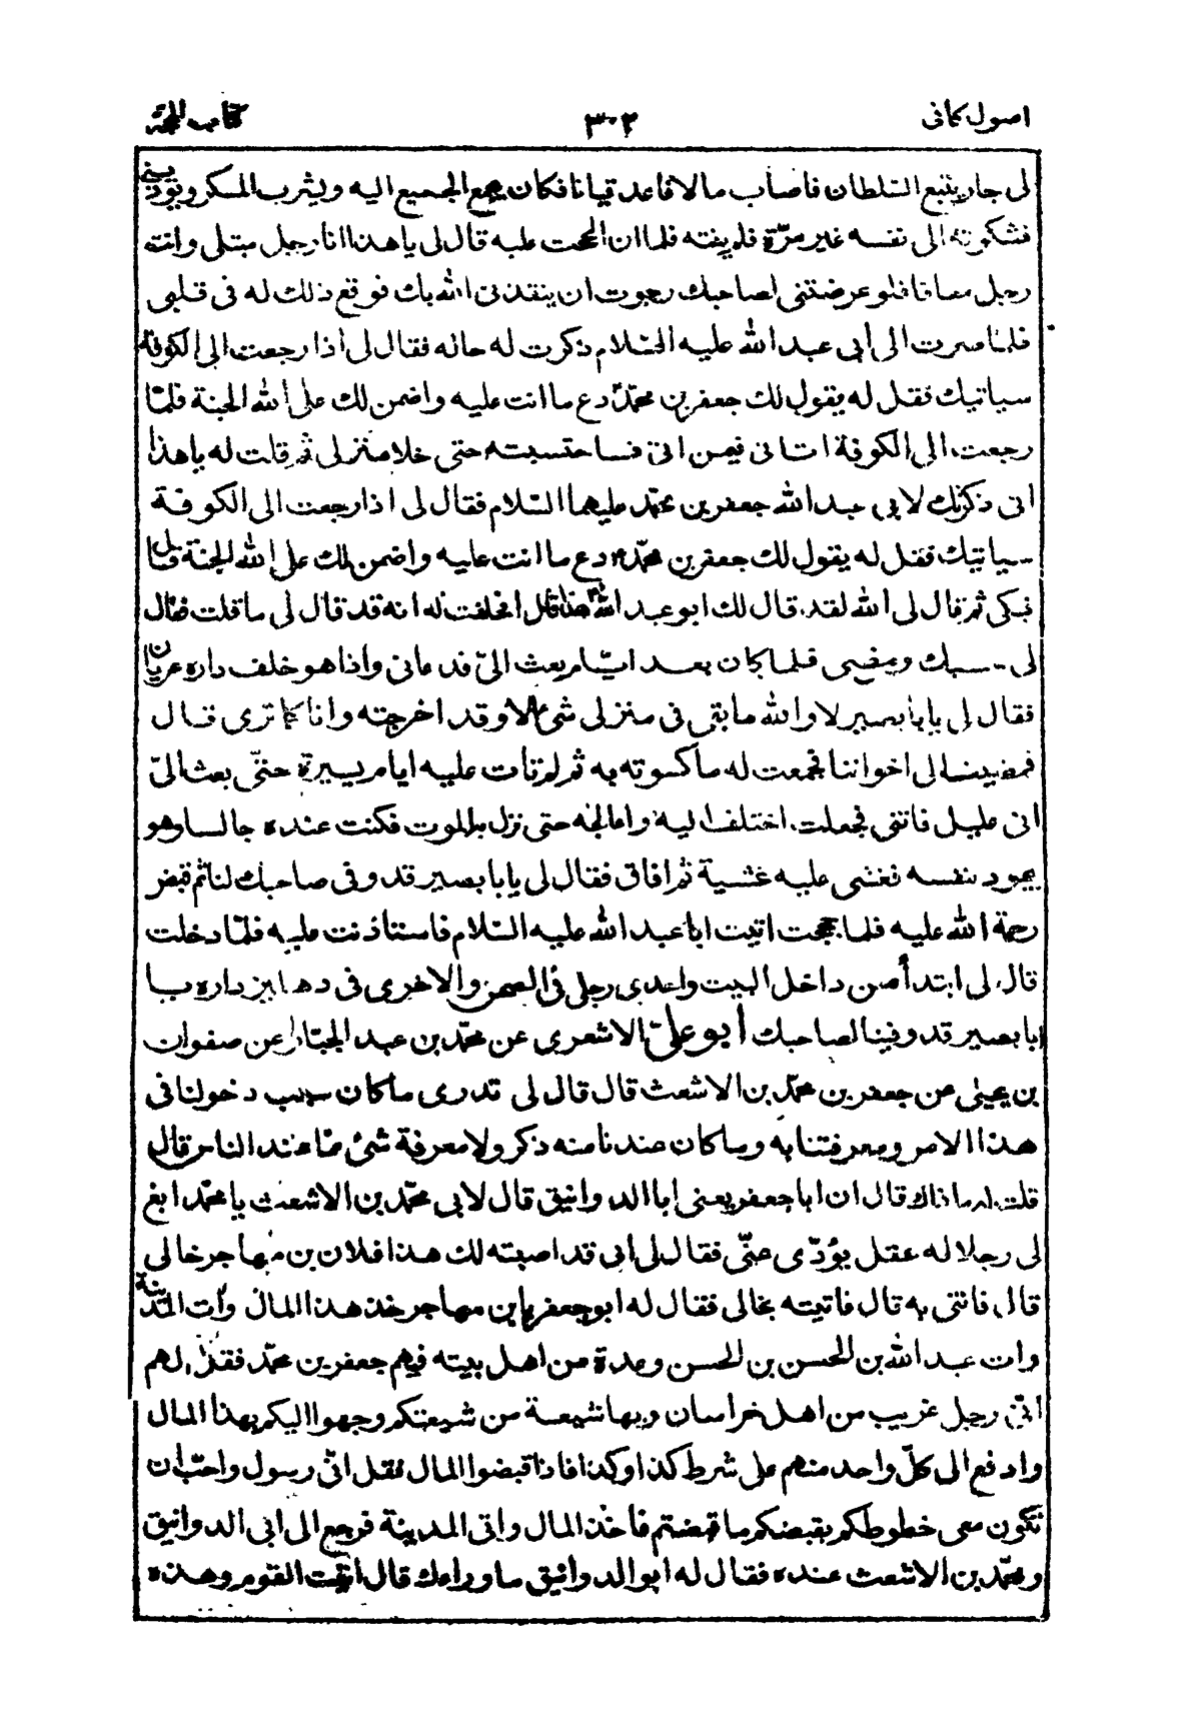 اصول كافى ٣٠٢ كتاب الحجة
لى جار يتبع السلطان فاصاب مالا فاعد قيانا فكان يجمع الجميع اليه ويشرب المسكر ويؤذينى
فشكوته الى نفسه غير مرّة فلم ينته فلما ان الححت عليه قال لى يا هذا انا رجل مبتلى وانت
رجل معافا فلو عرضتنى لصاحبك رجوت ان ينقذنى الله بك فوقع ذلك له فى قلبى
فلما صرت الى أبى عبد الله عليه السّلام ذكرت له حاله فقال لى اذا رجعت الى الكوفة
سياتيك فقل له يقول لك جعفر بن محمّد دع ما انت عليه واضمن لك على الله الجنة فلمّا
رجعت الى الكوفة اتانى فيمن اتى فاحتسبته حتى خلا منزلى ثم قلت له يا هذا
انى ذكرتك لابى عبد الله جعفر بن محمّد عليهما السّلام فقال لى اذا رجعت الى الكوفة
سياتيك فقل له يقول لك جعفر بن محمّد دع ما انت عليه واضمن لك على الله الجنة قال
فبكى ثم قال لى الله لقد قال لك ابو عبد الله هذا قال فحلفت له انه قد قال لى ما قلت فقال
لى حسبك ومضى فلما كان بعد ايّام بعث الىّ فدعانى واذا هو خلف داره عريان
فقال لى يابا بصير لا والله ما بقى فى منزلى شئ الا وقد اخرجته وانا كما ترى قال
فمضيت الى اخواننا فجمعت له ما كسوته به ثم لم تات عليه ايام يسيرة حتّى بعث الىّ
انى عليل فاتنى فجعلت اختلف اليه واعالجه حتى نزل به الموت فكنت عنده جالسا وهو
يجود بنفسه فغشى عليه غشية ثم افاق فقال لى يابا بصير قد وفى صاحبك لنا ثم قبض
رحمة الله عليه فلما حججت اتيت ابا عبد الله عليه السّلام فاستاذنت عليه فلمّا دخلت
قال لى ابتدأ من داخل البيت واحدى رجلى فى الصحن والاخرى فى دهليز داره يا
ابا بصير قد وفينا لصاحبك أبو علىّ الاشعرى عن محمّد بن عبد الجبّار عن صفوان
بن يحيى عن جعفر بن محمّد بن الاشعث قال قال لى تدرى ما كان سبب دخولنا فى
هذا الامر ومعرفتنا به وما كان عندنا منه ذكر ولا معرفة شئ ممّا عند الناس قال
قلت له ما ذاك قال ان ابا جعفر يعنى ابا الدوانيق قال لابى محمّد بن الاشعث يا محمّد ابغ
لى رجلا له عقل يؤدّى عنّى فقال له ابى قد اصبته لك هذا فلان بن مهاجر خالى
قال فاتنى به قال فاتيته بخالى فقال له ابو جعفر يا بن مهاجر خذ هذا المال وأت المدينة
وات عبد الله بن الحسن بن الحسن وعدة من اهل بيته فيهم جعفر بن محمّد فقل لهم
انّى رجل غريب من اهل خراسان وبها شيعة من شيعتكم وجهوا اليكم بهذا المال
وادفع الى كلّ واحد منهم على شرط كذا وكذا فاذا قبضوا المال فقل انّى رسول واحبّ ان
تكون معى خطوطكم بقبضكم ما قبضتم فاخذ المال واتى المدينة فرجع الى ابى الدوانيق
ومحمّد بن الاشعث عنده فقال له ابو الدوانيق ما وراءك قال اتيت القوم وهذه